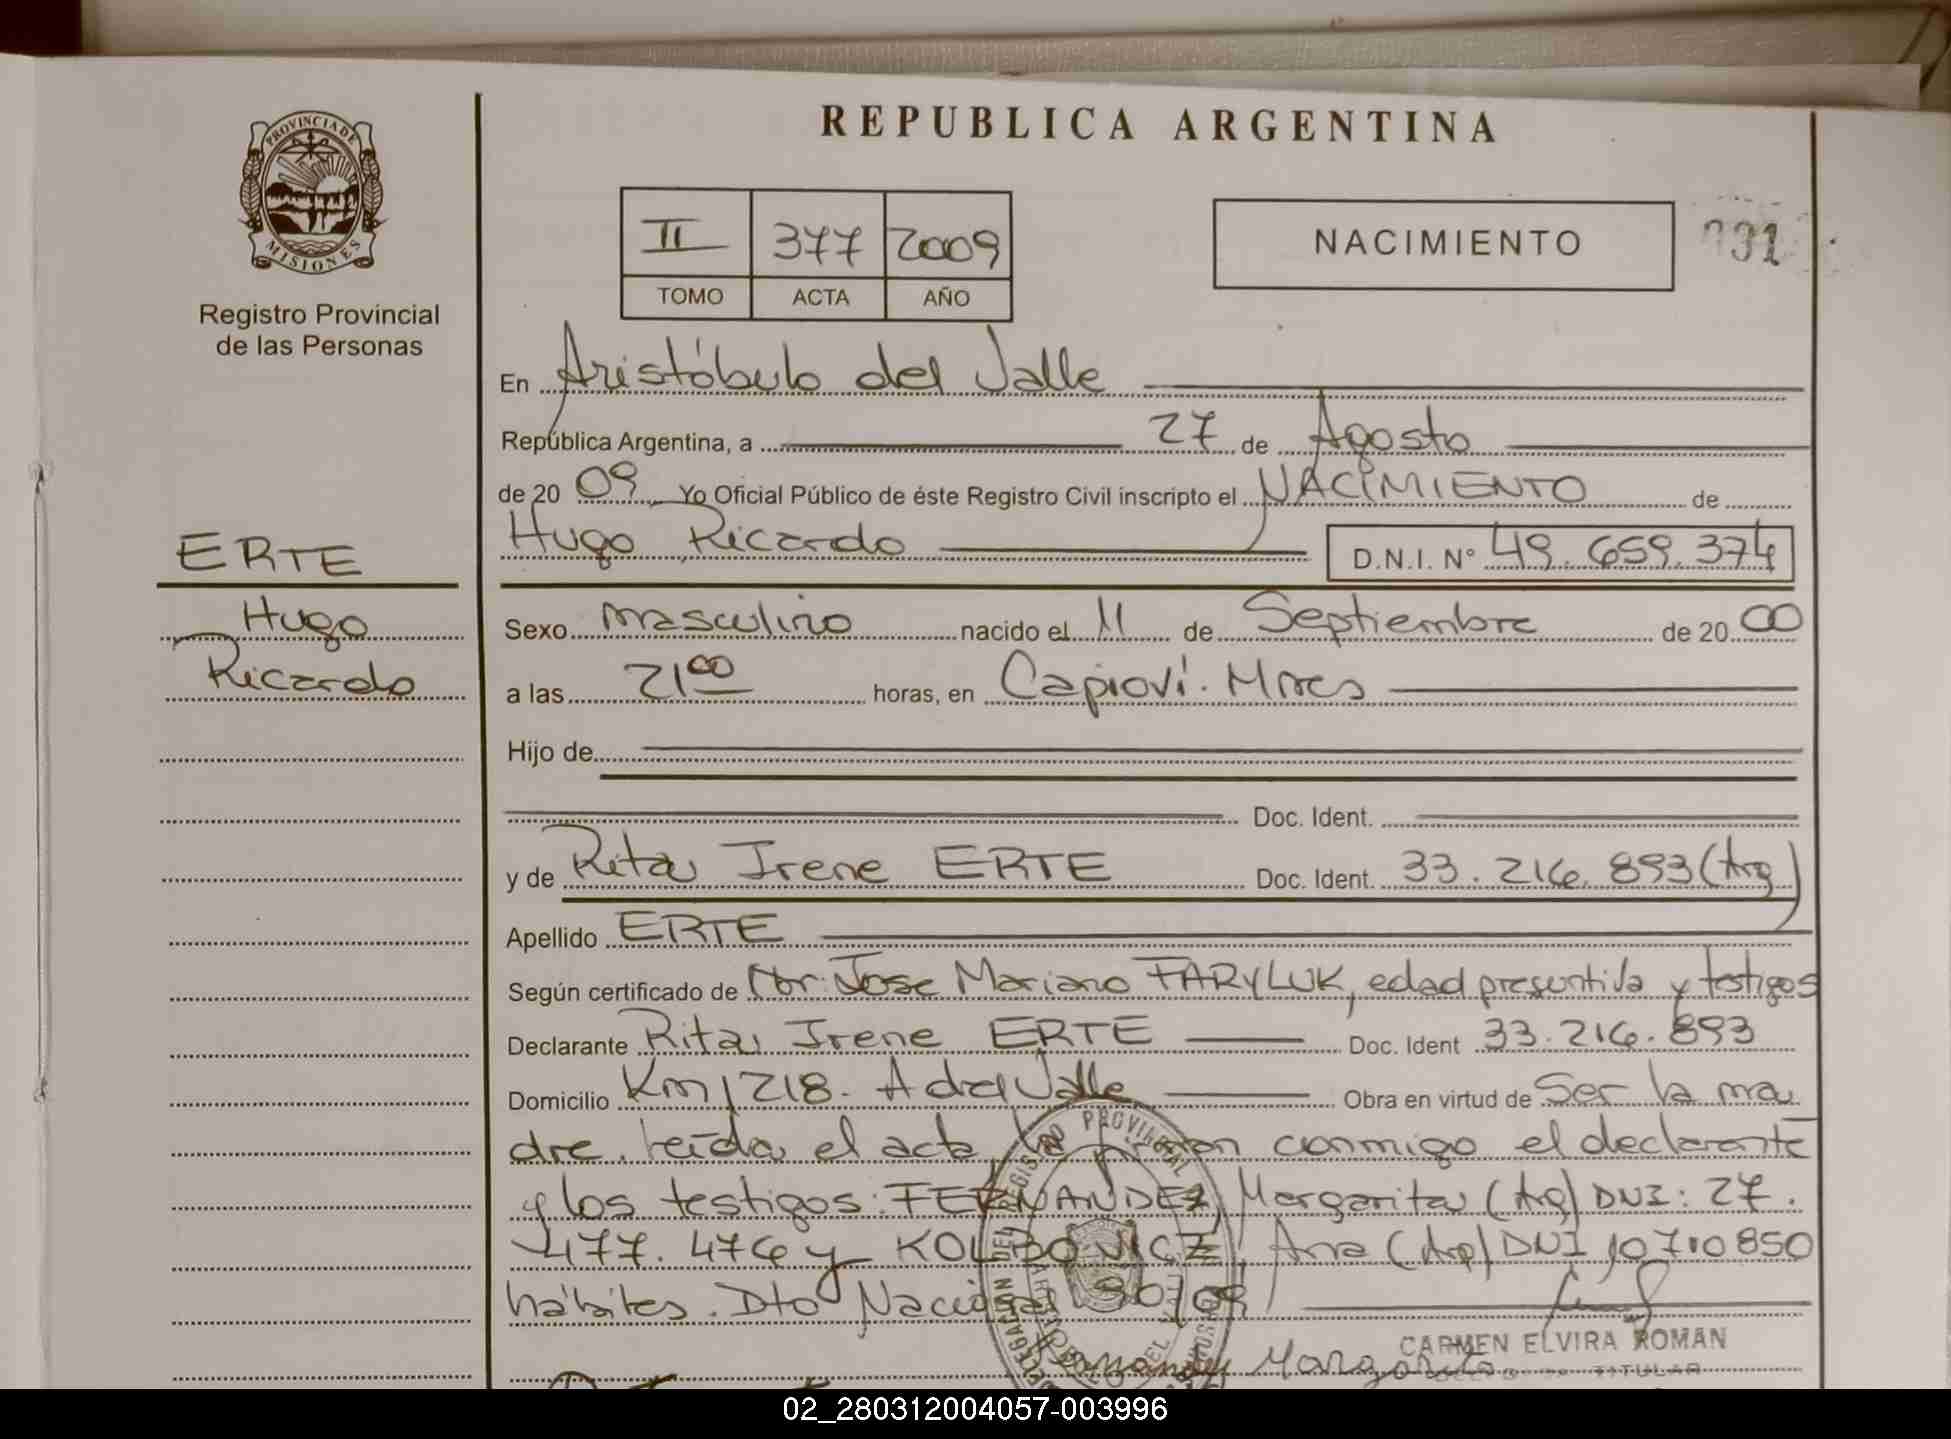 REPUBLICA ARGENTINA
PROVINCIA DE
MISIONES
Registro Provincial
de las Personas
II 377 2009
TOMO ACTA AÑO
NACIMIENTO
031
En Aristóbulo del Valle
República Argentina, a 27 de Agosto
de 20 09 Yo Oficial Público de éste Registro Civil inscripto el NACIMIENTO de
Hugo Ricardo D.N.I. N° 49.659.374
ERTE
Hugo
Ricardo
Sexo masculino nacido el 11 de Septiembre de 20 00
a las 21 00 horas, en Capioví. Mnes
Hijo de
Doc. Ident.
y de Rita Irene ERTE Doc. Ident. 33.216.893 (Arg)
Apellido ERTE
Según certificado de Dr: Jose Mariano FARYLUK, edad presuntiva y testigos
Declarante Rita Irene ERTE Doc. Ident 33.216.893
Domicilio Km 1218. A del Valle Obra en virtud de Ser la ma
dre. leída el acta, la firman conmigo el declarante
y los testigos: FERNANDEZ, Margarita (Arg) DNI: 27.
477.476 y Ana (Arg) DNI 10710850
hábiles. Dto Nacional 90/09
CARMEN ELVIRA ROMAN
TITULAR
Fernandez Margarita
REGISTRO PROVINCIAL
DELEGACION DEL
02_280312004057-003996